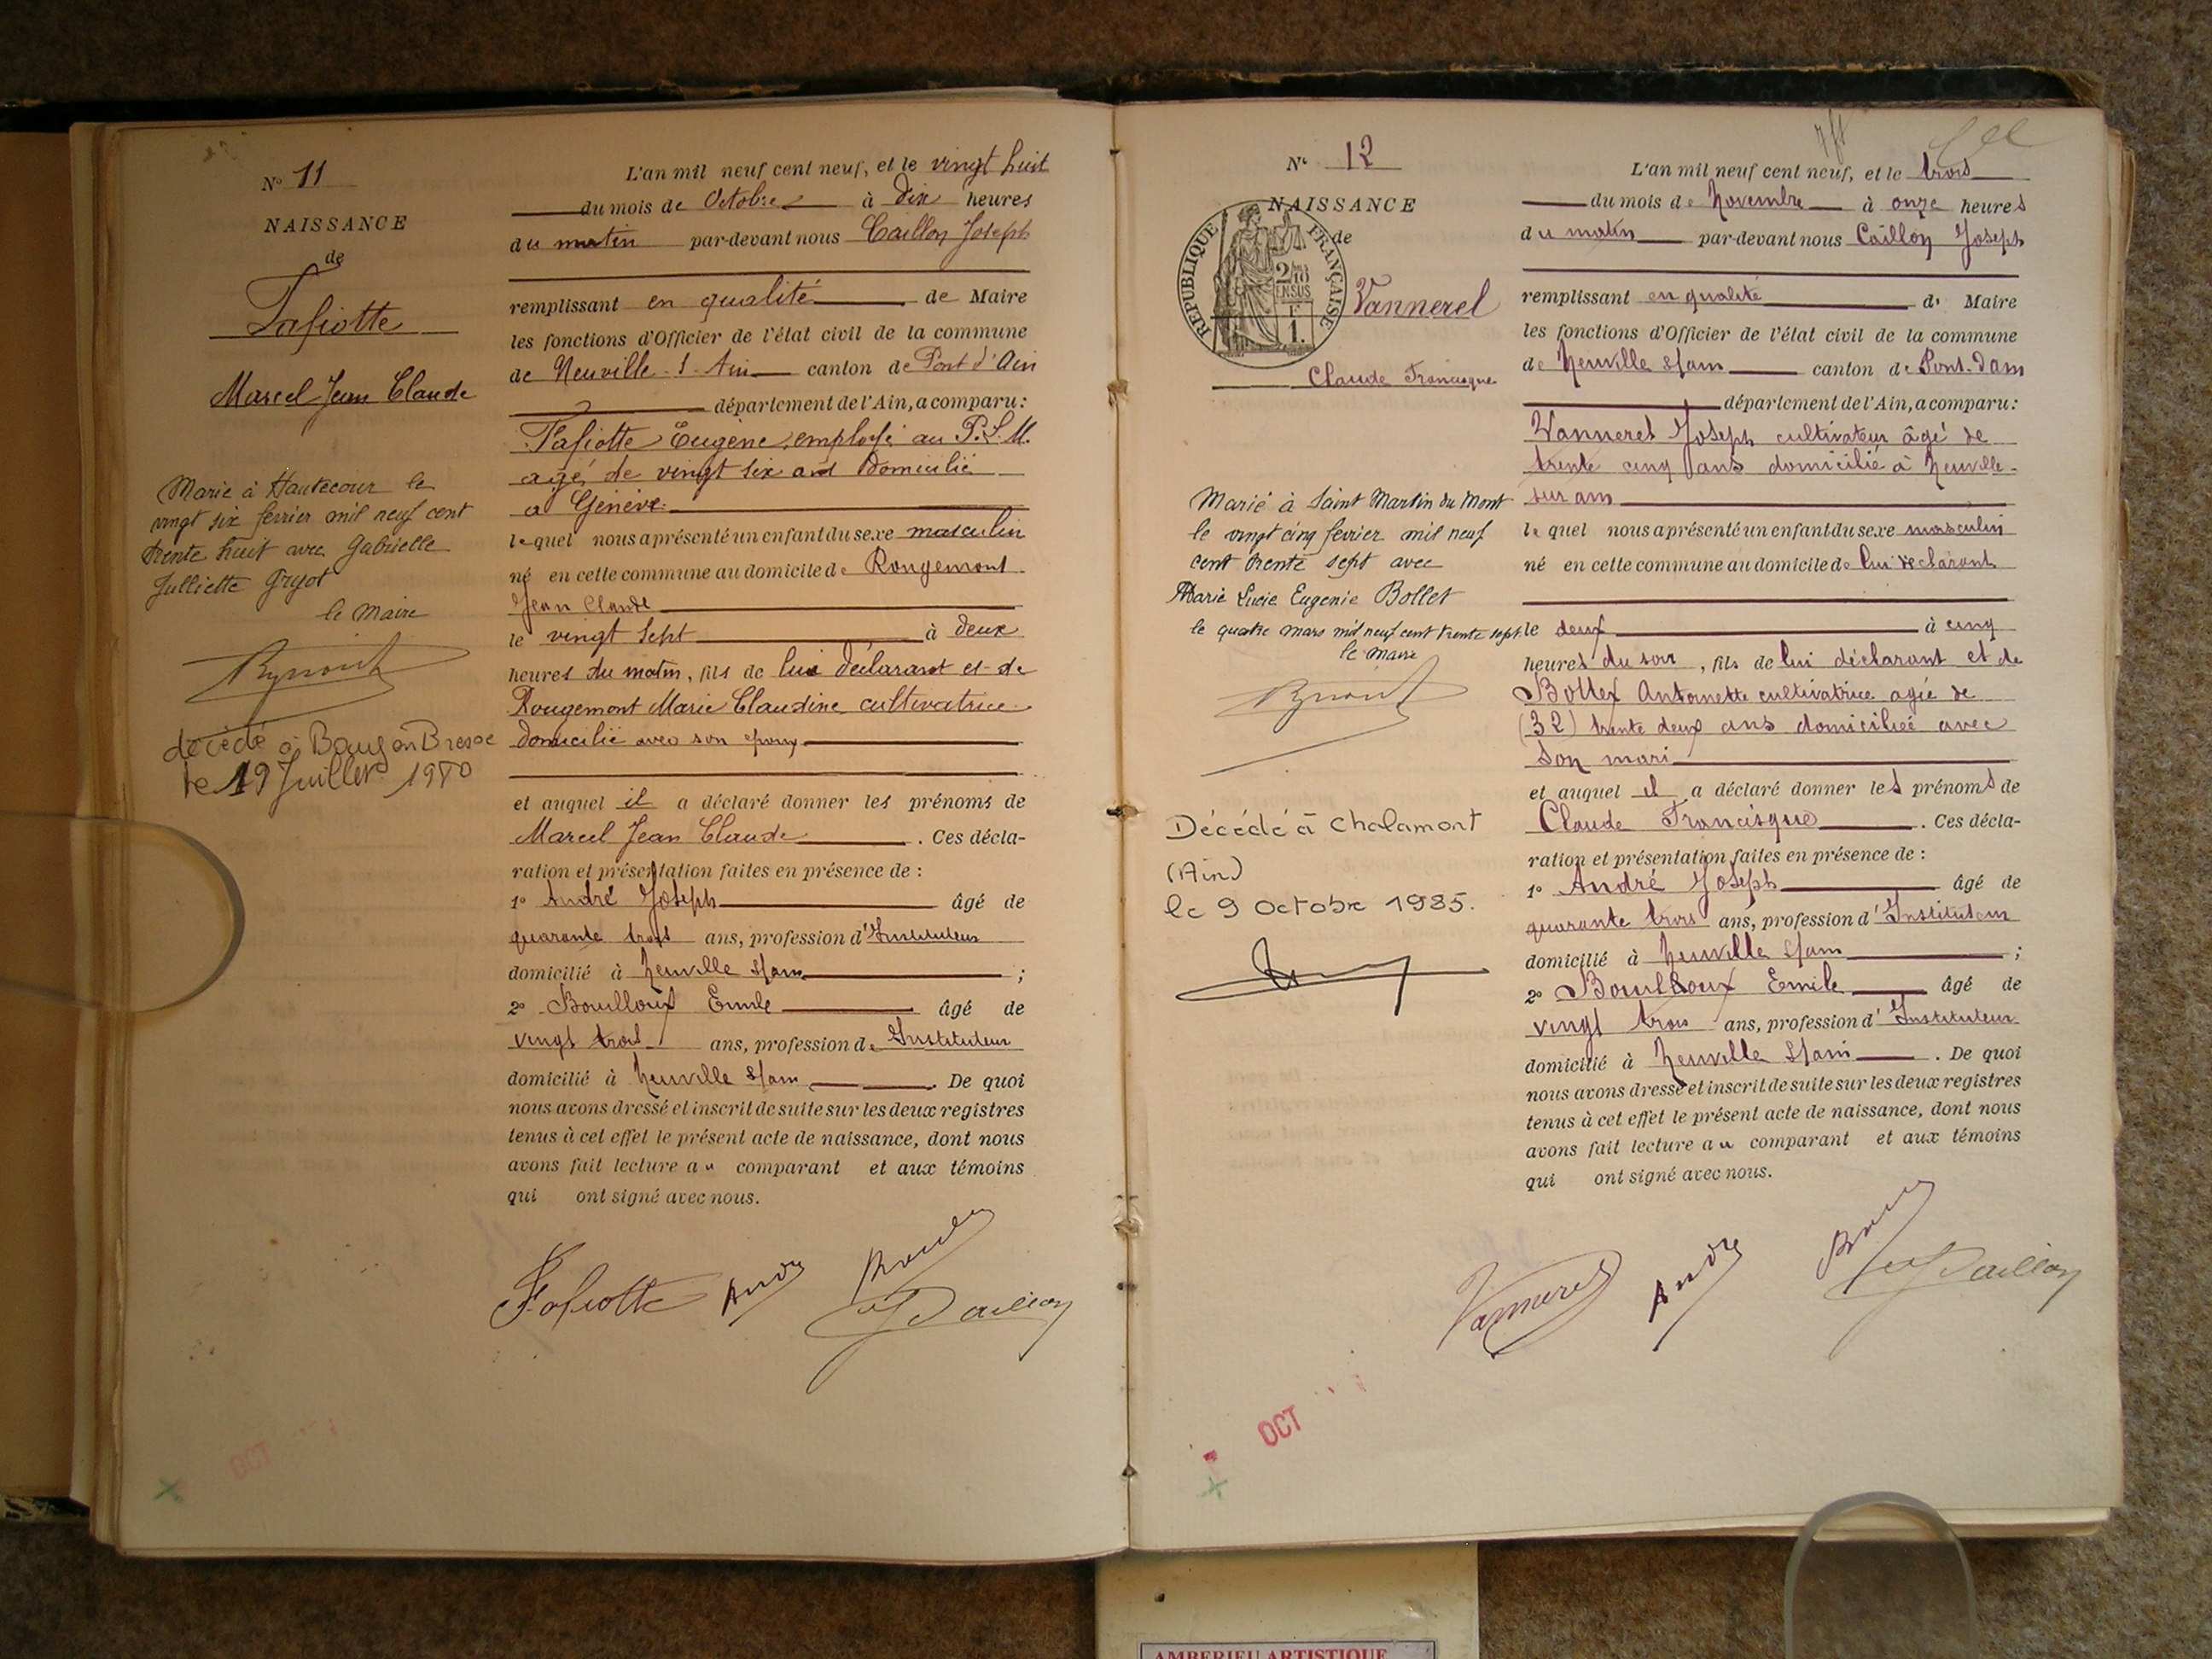 N° 11
NAISSANCE
de
Tafiotte
Marcel Jean Claude
Marié à Hautecour le
vingt six fevrier mil neuf cent
trente huit avec Gabrielle
Julliette Gryot
le Maire
décédé à Bourg en Bresse
le 19 Juillet 1980
L'an mil neuf cent neuf, et le vingt huit
du mois de Octobre à dix heures
du matin par-devant nous Caillon Joseph
remplissant en qualité de Maire
les fonctions d'Officier de l'état civil de la commune
de Neuville-s-Ain canton de Pont d'Ain
département de l'Ain, a comparu :
Tafiotte Eugène, employé au P.L.M.
agé de vingt six ans domicilié
a Genève
lequel nous a présenté un enfant du sexe masculin
né en cette commune au domicile de Rougemont
Jean Claude
le vingt sept à deux
heures du matin, fils de lui déclarant et de
Rougemont Marie Claudine cultivatrice
domicilié avec son epoux
et auquel il a déclaré donner les prénoms de
Marcel Jean Claude . Ces décla-
ration et présentation faites en présence de :
1° André Joseph âgé de
quarante trois ans, profession d'Instituteur
domicilié à Neuville s/ain ;
2° Bouilloux Emile âgé de
vingt trois ans, profession d'Instituteur
domicilié à Neuville s/ain . De quoi
nous avons dressé et inscrit de suite sur les deux registres
tenus à cet effet le présent acte de naissance, dont nous
avons fait lecture au comparant et aux témoins
qui ont signé avec nous.
Tafiotte André Caillon
OCT
N° 12
NAISSANCE
de
REPUBLIQUE FRANÇAISE
2/10 EN SUS
F 1.
Vannerel
Claude Francisque
Marié à Saint Martin du Mont
le vingt cinq fevrier mil neuf
cent trente sept avec
Marie Lucie Eugenie Bollet
le quatre mars mil neuf cent trente sept
le maire
Décédé à Chalamont
(Ain)
le 9 Octobre 1985.
L'an mil neuf cent neuf, et le trois
du mois de Novembre à onze heures
du matin par-devant nous Caillon Joseph
remplissant en qualité de Maire
les fonctions d'Officier de l'état civil de la commune
de Neuville s/ain canton de Pont-dain
département de l'Ain, a comparu :
Vannerel Joseph cultivateur âgé de
trente cinq ans domicilié à Neuville-
sur ain
lequel nous a présenté un enfant du sexe masculin
né en cette commune au domicile de lui déclarant
le deux à cinq
heures du soir, fils de lui déclarant et de
Bottex Antoinette cultivatrice agée de
(32) trente deux ans domiciliée avec
son mari
et auquel il a déclaré donner les prénoms de
Claude Francisque . Ces décla-
ration et présentation faites en présence de :
1° André Joseph âgé de
quarante trois ans, profession d'Instituteur
domicilié à Neuville s/ain ;
2° Bouilloux Emile âgé de
vingt trois ans, profession d'Instituteur
domicilié à Neuville s/ain . De quoi
nous avons dressé et inscrit de suite sur les deux registres
tenus à cet effet le présent acte de naissance, dont nous
avons fait lecture au comparant et aux témoins
qui ont signé avec nous.
Vannerel André Caillon
OCT
AMBERIEU ARTISTIQUE